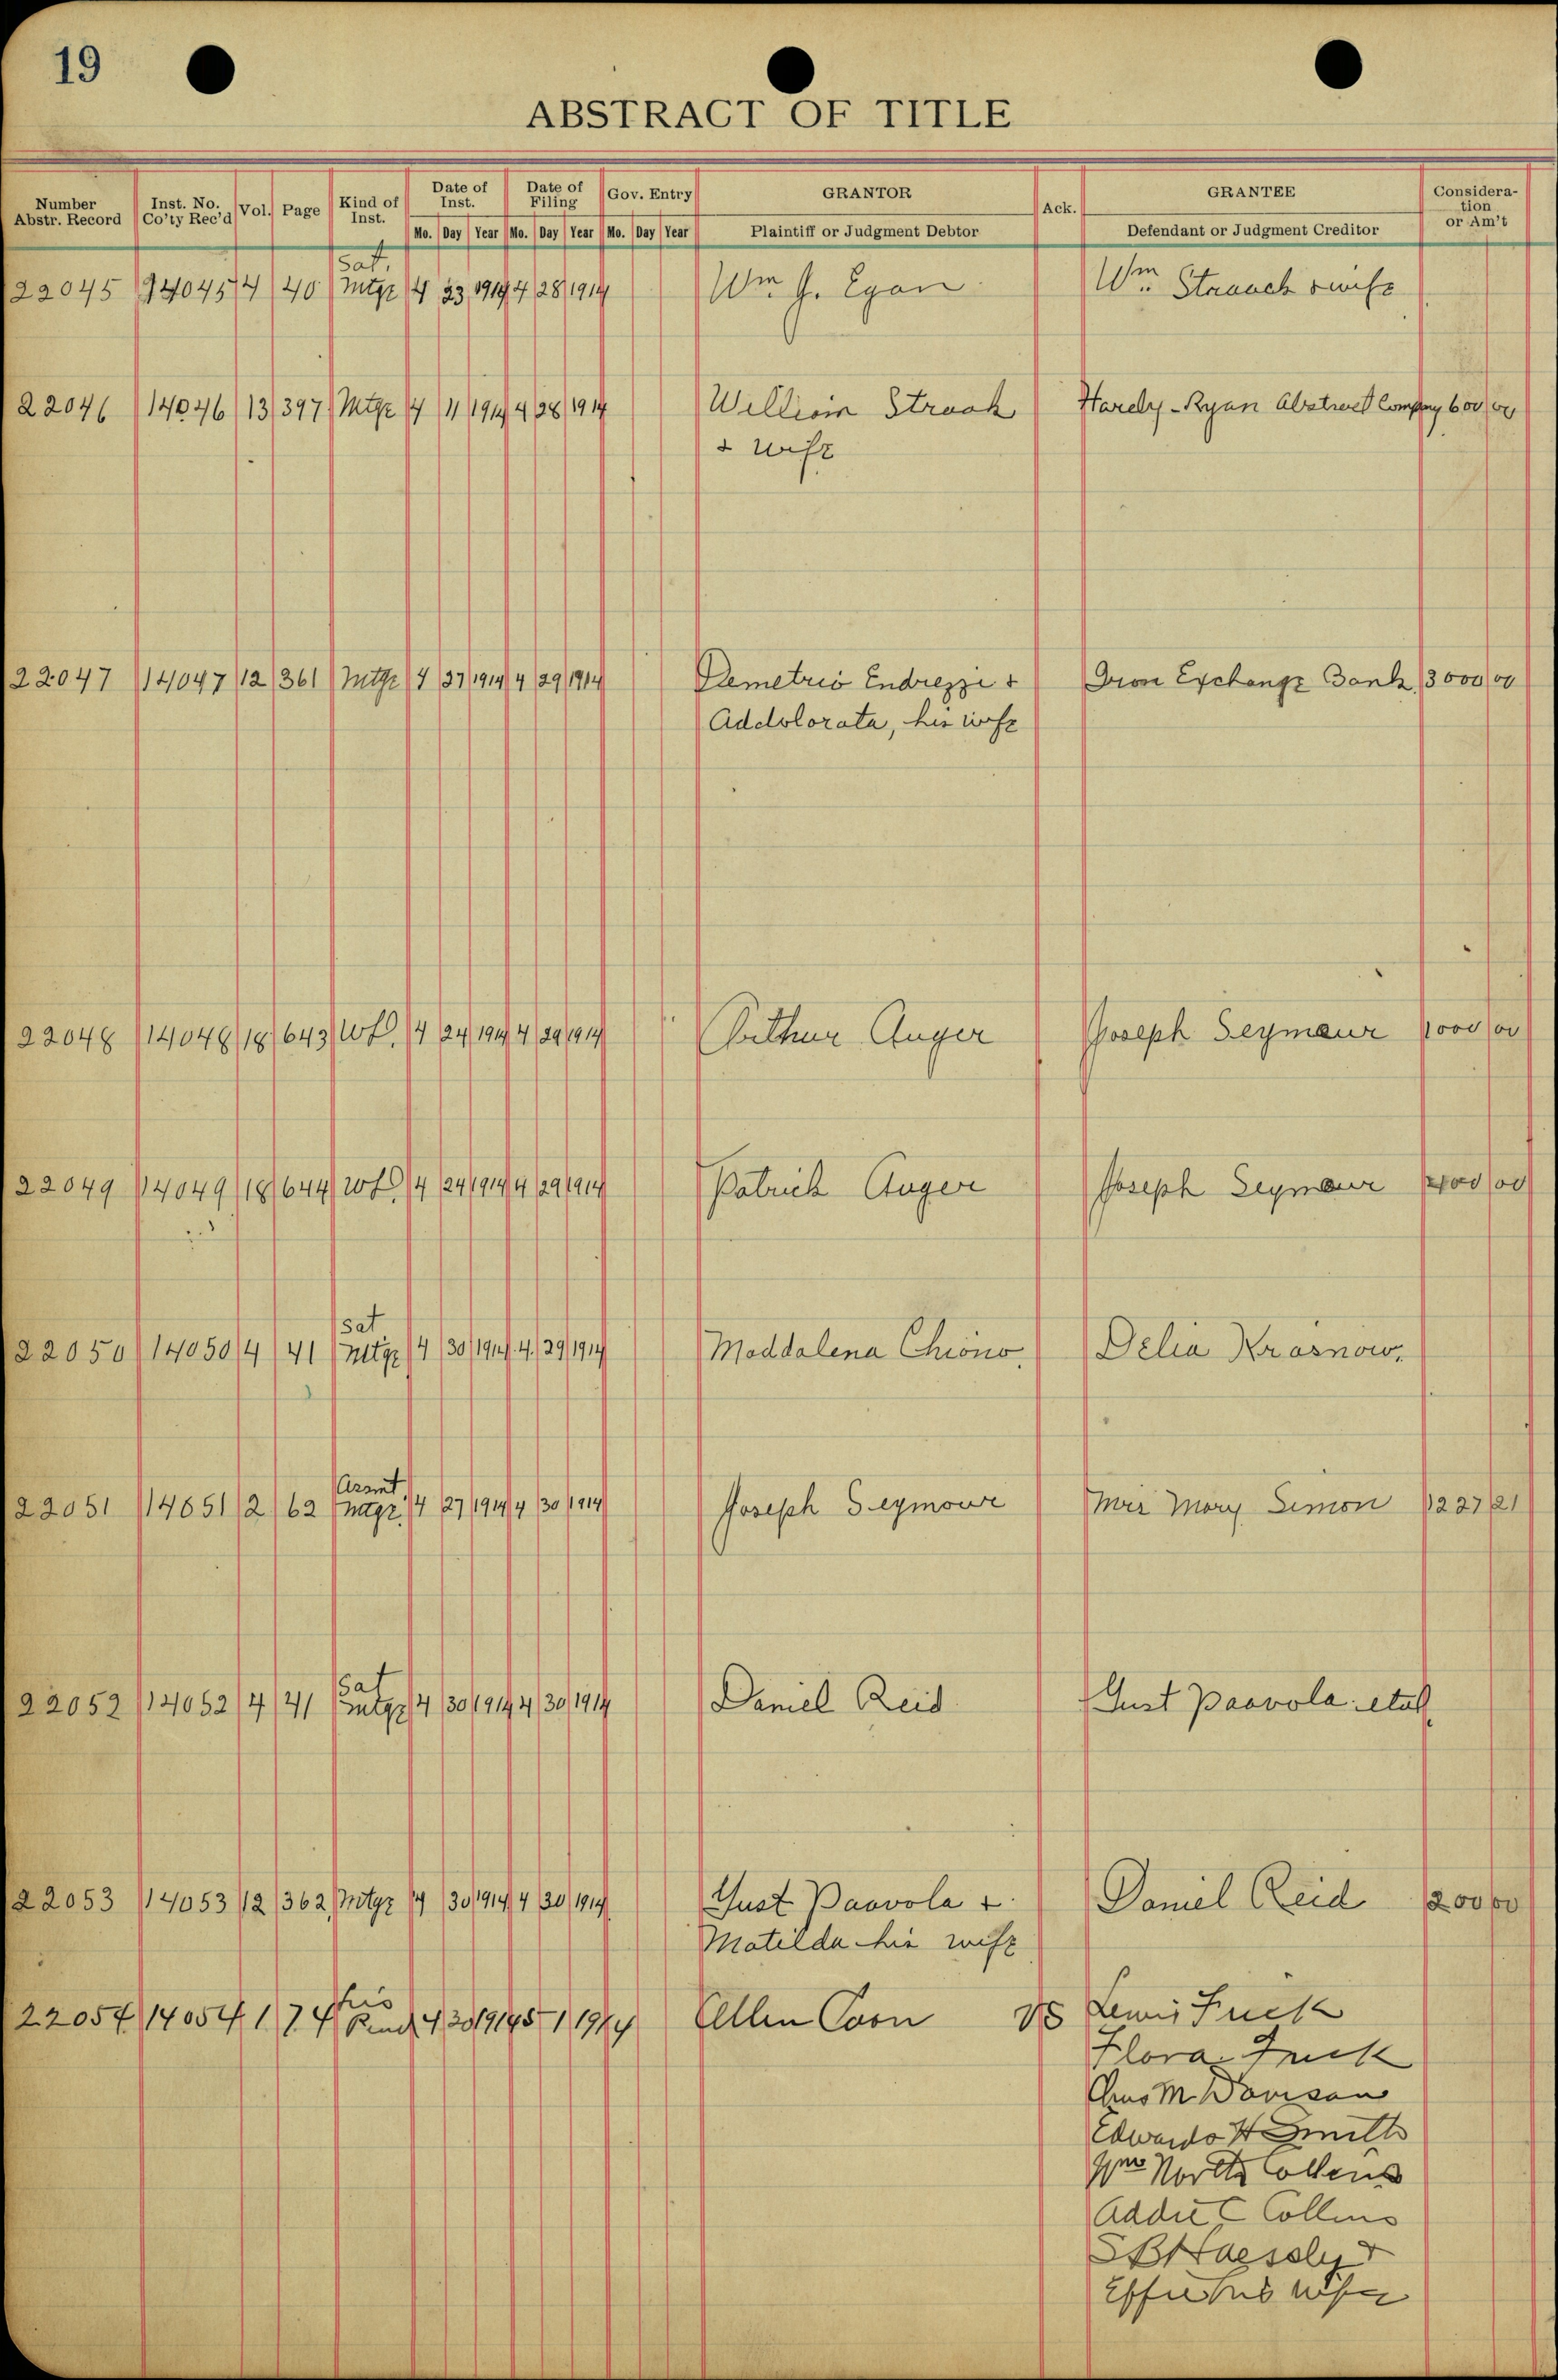 19
ABSTRACT OF TITLE
Number Abstr. Record Inst. No. Co'ty Rec'd Vol. Page Kind of Inst. Date of Inst. Date of Filing Gov. Entry GRANTOR Ack. GRANTEE Consideration or Am't
Mo. Day Year Mo. Day Year Mo. Day Year Plaintiff or Judgment Debtor Defendant or Judgment Creditor
Sat.
22045 14045 4 40 Mtge 4 23 1914 4 28 1914 Wm J. Egan Wm Strauch & wife
22046 14046 13 397 Mtge 4 11 1914 4 28 1914 William Strack Hardy-Ryan Abstract Company 600 00
& wife
22047 14047 12 361 Mtge 4 27 1914 4 29 1914 Demetrio Endrezzi & Iron Exchange Bank 3000 00
Addolorata, his wife
22048 14048 18 643 WD. 4 24 1914 4 29 1914 Arthur Auger Joseph Seymour 1000 00
22049 14049 18 644 WD 4 24 1914 4 29 1914 Patrick Auger Joseph Seymour 00
Sat
22050 14050 4 41 Mtge 4 30 1914 4 29 1914 Maddalena Chiono. Delia Krasnow.
Assmt
22051 14051 2 62 Mtge. 4 27 1914 4 30 1914 Joseph Seymour Mrs Mary Simon 1227 21
Sat
22052 14052 4 41 Mtge 4 30 1914 4 30 1914 Daniel Reid Gust Paavola etal.
22053 14053 12 362 Mtge 4 30 1914 4 30 1914 Gust Paavola & Daniel Reid 200 00
Matilda his wife
lis
22054 14054 1 74 Pend 4 30 1914 5 1 1914 Ellen Coon vs Lewis Fuck
Flora Fuck
Chas M Davison
Edward H Smith
Wm North Collins
Addie C Collins
S B Haessly &
Effie his wife